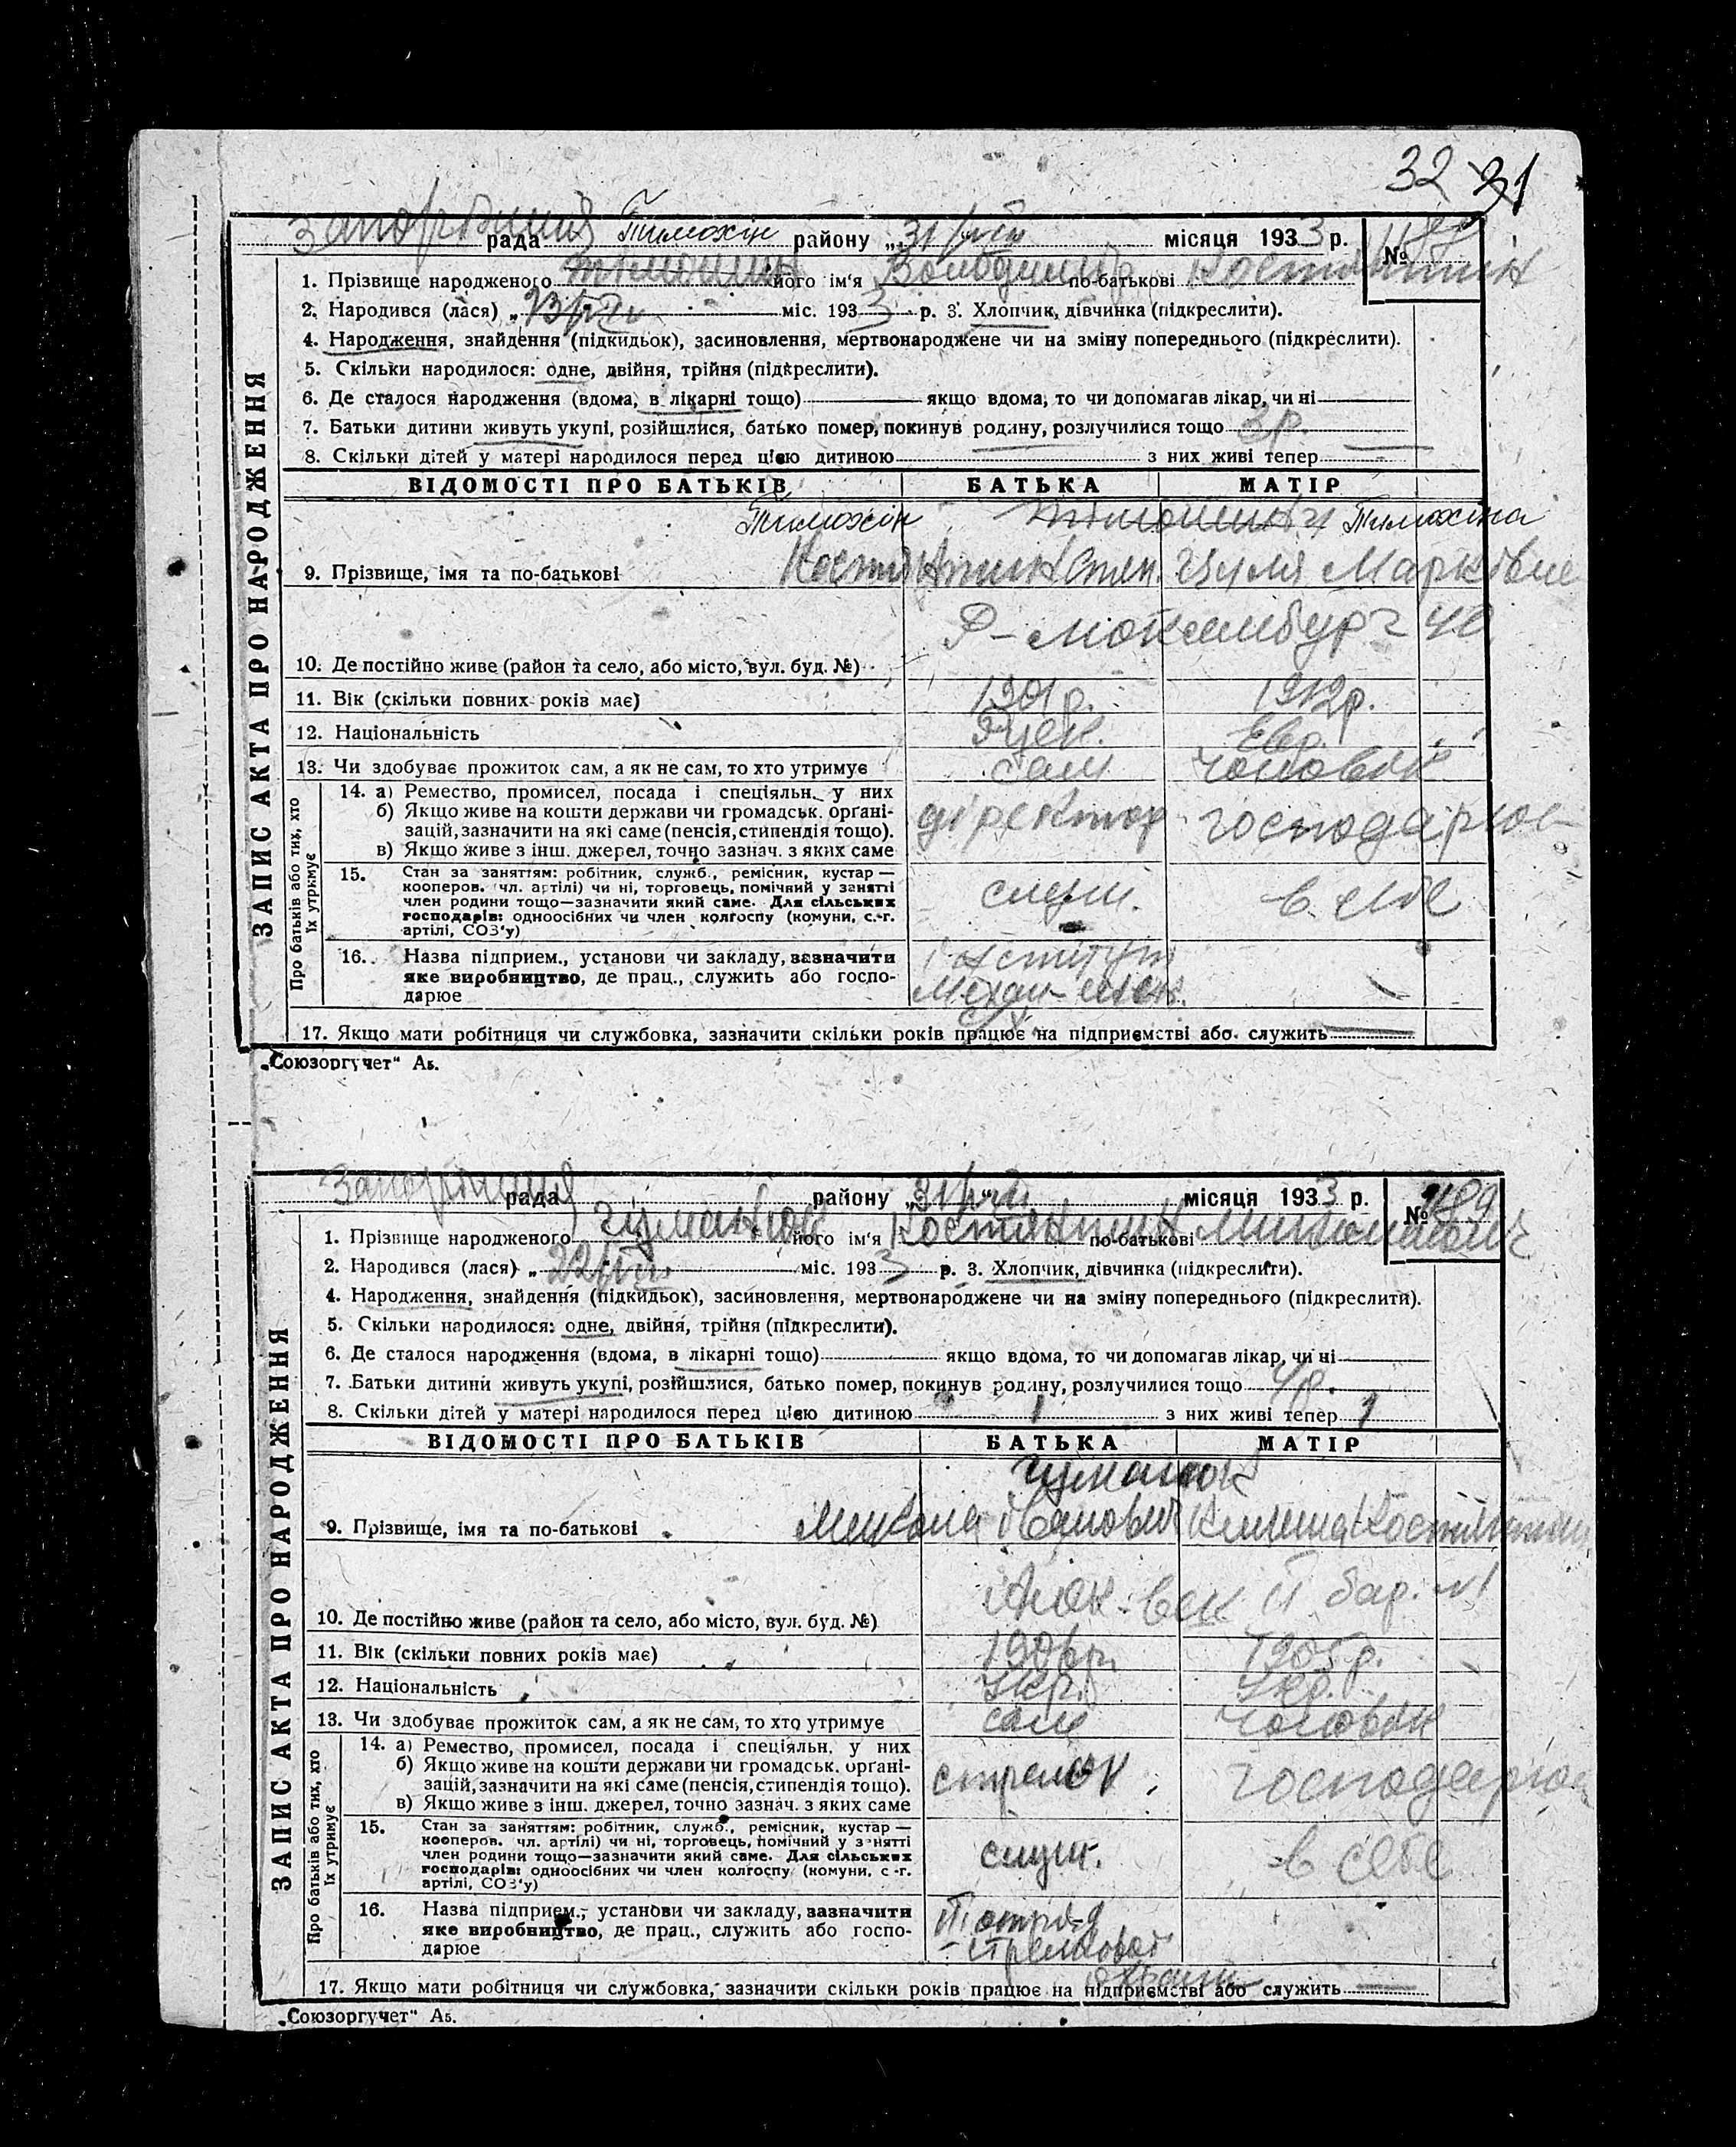 32 31
Тимохін
рада району „31 місяця 1933 р. №
1. Прізвище народженого його ім'я Володимир по-батькові Костянтин
2. Народився (лася) „ міс. 1933 р. 3. Хлопчик, дівчинка (підкреслити).
4. Народження, знайдення (підкидьок), засиновлення, мертвонароджене чи на зміну попереднього (підкреслити).
5. Скільки народилося: одне, двійня, трійня (підкреслити).
6. Де сталося народження (вдома, в лікарні тощо) якщо вдома, то чи допомагав лікар, чи ні
7. Батьки дитини живуть укупі, розійшлися, батько помер, покинув родину, розлучилися тощо 3 р.
8. Скільки дітей у матері народилося перед цією дитиною з них живі тепер
ВІДОМОСТІ ПРО БАТЬКІВ БАТЬКА МАТІР
Тимохін Тимохіна
9. Прізвище, імя та по-батькові Костянтин Степ. Циля Марківна
Р-Люксембург 40
10. Де постійно живе (район та село, або місто, вул. буд. №)
11. Вік (скільки повних років має) 1901 р. 1912 р.
12. Національність Євр.
13. Чи здобуває прожиток сам, а як не сам, то хто утримує сам чоловік
14. а) Ремество, промисел, посада і спеціяльн. у них
б) Якщо живе на кошти держави чи громадськ. орґані-
зацій, зазначити на які саме (пенсія, стипендія тощо).
в) Якщо живе з інш. джерел, точно зазнач. з яких саме
директор господарює
15. Стан за заняттям: робітник, служб., ремісник, кустар —
кооперов. чл. артілі) чи ні, торговець, помічний у занятті
член родини тощо—зазначити який саме. Для сільських
господарів: одноосібних чи член колгоспу (комуни, с.-г.
артілі, СОЗ'у)
служ. в себе
16. Назва підприєм., установи чи закладу, зазначити
яке виробництво, де прац., служить або госпо-
дарює
інститут
17. Якщо мати робітниця чи службовка, зазначити скільки років працює на підприємстві або служить
ЗАПИС АКТА ПРО НАРОДЖЕННЯ
Про батьків або тих, хто
їх утримує
„Союзоргучет" А5.
рада району „31 місяця 1933 р. №
1. Прізвище народженого Чуманюк його ім'я Костянтин по-батькові Миколайович
2. Народився (лася) „22 міс. 1933 р. 3. Хлопчик, дівчинка (підкреслити).
4. Народження, знайдення (підкидьок), засиновлення, мертвонароджене чи на зміну попереднього (підкреслити).
5. Скільки народилося: одне, двійня, трійня (підкреслити).
6. Де сталося народження (вдома, в лікарні тощо) якщо вдома, то чи допомагав лікар, чи ні
7. Батьки дитини живуть укупі, розійшлися, батько помер, покинув родину, розлучилися тощо 4 р.
8. Скільки дітей у матері народилося перед цією дитиною 1 з них живі тепер 1
ВІДОМОСТІ ПРО БАТЬКІВ БАТЬКА МАТІР
Чуманюк
9. Прізвище, імя та по-батькові Микола Іванович
ІІ бар. №1
10. Де постійно живе (район та село, або місто, вул. буд. №)
11. Вік (скільки повних років має) 1906 р. 1905 р.
12. Національність Укр. Укр.
13. Чи здобуває прожиток сам, а як не сам, то хто утримує сам чоловік
14. а) Ремество, промисел, посада і спеціяльн. у них
б) Якщо живе на кошти держави чи громадськ. орґані-
зацій, зазначити на які саме (пенсія, стипендія тощо).
в) Якщо живе з інш. джерел, точно зазнач. з яких саме
стрелок господарює
15. Стан за заняттям: робітник, служб., ремісник, кустар —
кооперов. чл. артілі) чи ні, торговець, помічний у занятті
член родини тощо—зазначити який саме. Для сільських
господарів: одноосібних чи член колгоспу (комуни, с.-г.
артілі, СОЗ'у)
служ. в себе
16. Назва підприєм., установи чи закладу, зазначити
яке виробництво, де прац., служить або госпо-
дарює
отряд
охрани
17. Якщо мати робітниця чи службовка, зазначити скільки років працює на підприємстві або служить
ЗАПИС АКТА ПРО НАРОДЖЕННЯ
Про батьків або тих, хто
їх утримує
„Союзоргучет" А5.